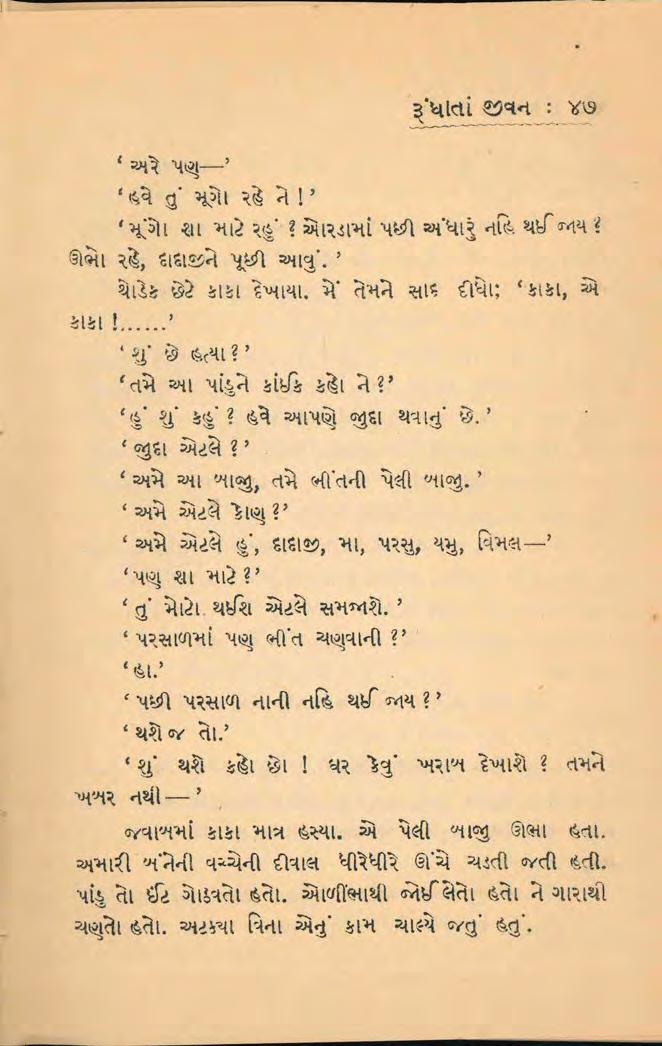 રૂંધાતાં જીવન : ૪૭
‘ અરે પણ—’
‘ હવે તું મૂગો રહે ને ! ’
‘ મૂંગો શા માટે રહું ? ઓરડામાં પછી અંધારું નહિ થઈ જાય ?
ઊભો રહે, દાદાજીને પૂછી આવું. ’
થોડેક છેટે કાકા દેખાયા. મેં તેમને સાદ દીધો; ‘ કાકા, એ
કાકા !...... ’
‘ શું છે હત્યા ? ’
‘ તમે આ પાંડુને કાંઈક કહો ને ? ’
‘ હું શું કહું ? હવે આપણે જુદા થવાનું છે. ’
‘ જુદા એટલે ? ’
‘ અમે આ બાજુ, તમે ભીંતની પેલી બાજુ. ’
‘ અમે એટલે કોણ ? ’
‘ અમે એટલે હું, દાદાજી, મા, પરસુ, યમુ, વિમલ—’
‘ પણ શા માટે ? ’
‘ તું મોટો થઈશ એટલે સમજાશે. ’
‘ પરસાળમાં પણ ભીંત ચણવાની ? ’
‘ હા. ’
‘ પછી પરસાળ નાની નહિ થઈ જાય ? ’
‘ થશે જ તો. ’
‘ શું થશે કહો છો ! ઘર કેવું ખરાબ દેખાશે ? તમને
ખબર નથી — ’
જવાબમાં કાકા માત્ર હસ્યા. એ પેલી બાજુ ઊભા હતા.
અમારી બંનેની વચ્ચેની દીવાલ ધીરેધીરે ઊંચે ચડતી જતી હતી.
પાંડુ તો ઈંટ ગોઠવતો હતો. ઓળંભાથી જોઈ લેતો હતો ને ગારાથી
ચણતો હતો. અટક્યા વિના એનું કામ ચાલ્યે જતું હતું.